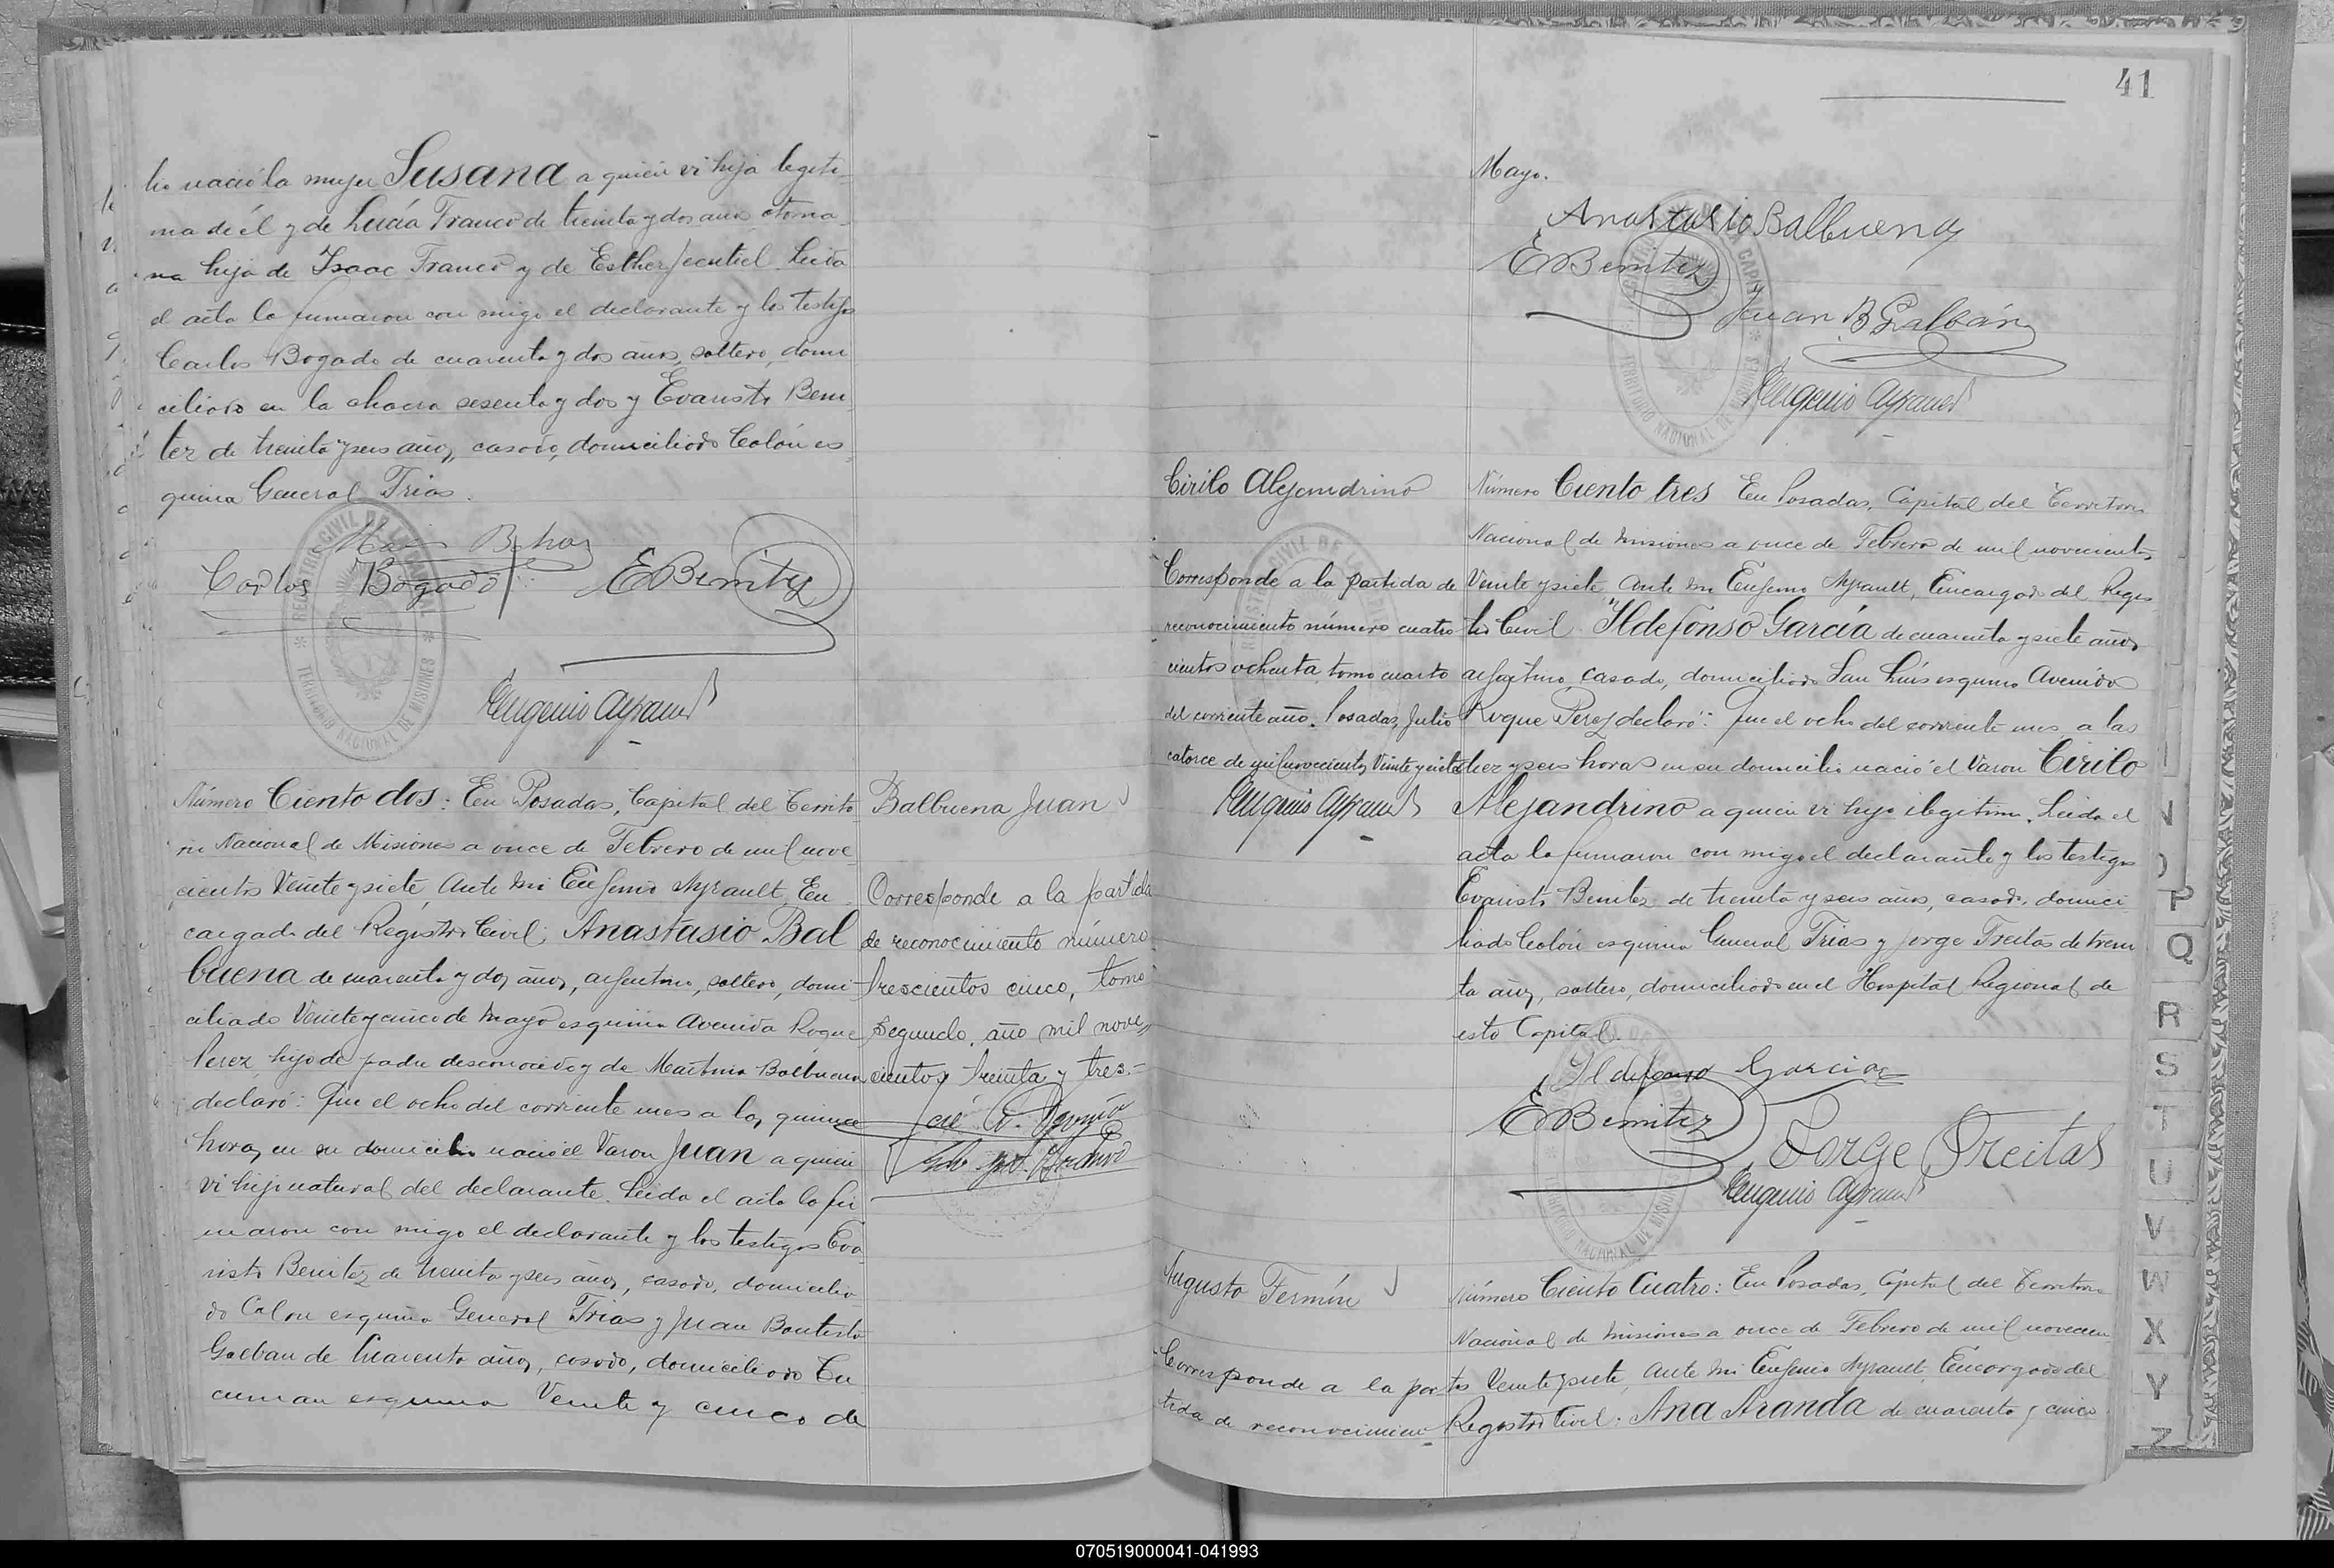 lio nació la mujer Susana a quien vi hija legiti-
ma de él y de Lucía Franco de treinta y dos años otoma-
na hija de Isaac Franco y de Esther Leida
el acta la firmaron con migo el declarante y los testigos
Carlos Bogado de cuarenta y dos años, soltero, domi
ciliado en la chacra sesenta y dos y Evaristo Beni
tez de treinta y seis años, casado, domiciliado Colón es
quina General Frias.
Carlos Bogado EBenitez
REGISTRO CIVIL DE LA CAPITAL
TERRITORIO NACIONAL DE MISIONES
Eugenio Ayrault
Número Ciento dos: En Posadas, Capital del Territo
rio Nacional de Misiones a once de Febrero de mil nove
cientos Veinte y siete, Ante mi Eugenio Ayrault, En
cargado del Registro Civil; Anastasio Bal
buena de cuarenta y dos años, argentino, soltero, domi-
ciliado Veinte y cinco de Mayo esquina Avenida Roque
Perez, hijo de padre desconocido y de Martina Balbuena
declaró: Que el ocho del corriente mes a las quince
horas en su domicilio nació el Varon Juan a quien
vi hijo natural del declarante. Leida el acta la fir
maron con migo el declarante y los testigos Eva
risto Benitez de treinta y seis años, casado, domicilia
do Colon esquina General Frias y Juan Bautista
Galban de Cuarenta años, casado, domiciliado Tu
cuman esquina Veinte y cinco de
Balbuena Juan
Corresponde a la partida
de reconocimiento número
trescientos cinco, tomo
segundo, año mil nove
cientos treinta y tres.-
41
Mayo.
Anastasio Balbuena
EBenitez
Juan B Galbán
Eugenio Ayrault
Cirilo Alejandrino
Corresponde a la partida de
reconocimiento número cuatro
cientos ochenta, tomo cuarto
del corriente año. Posadas, Julio
catorce de mil novecientos Veinte y siete
Eugenio Ayrault
Número Ciento tres En Posadas, Capital del Territorio
Nacional de Misiones a once de Febrero de mil novecientos
Veinte y siete Ante mi Eugenio Ayrault, Encargado del Regis
tro Civil Ildefonso García de cuarenta y siete años,
argentino, casado, domiciliado San Luis esquina Avenida
Roque Perez declaró: Que el ocho del corriente mes a las
diez y seis horas en su domicilio nació el Varon Cirilo
Alejandrino a quien vi hijo ilegitimo. Leida el
acta la firmaron con migo el declarante y los testigos
Evaristo Benitez de treinta y seis años, casado, domici
liado Colón esquina General Frias y Jorge Freitas de trein
ta años, soltero, domiciliado en el Hospital Regional de
esta Capital.
Ildefonso Garcia
EBenitez
Jorge Freitas
Eugenio Ayrault
Augusto Fermín
Corresponde a la par
tida de reconocimien
Número Ciento Cuatro: En Posadas, Capital del Territorio
Nacional de Misiones a once de Febrero de mil novecien
tos Veinte y siete, Ante mi Eugenio Ayrault, Encargado del
Registro Civil: Ana Aranda de cuarenta y cinco
P
Q
R
S
T
U
V
W
X
Y
Z
070519000041-041993